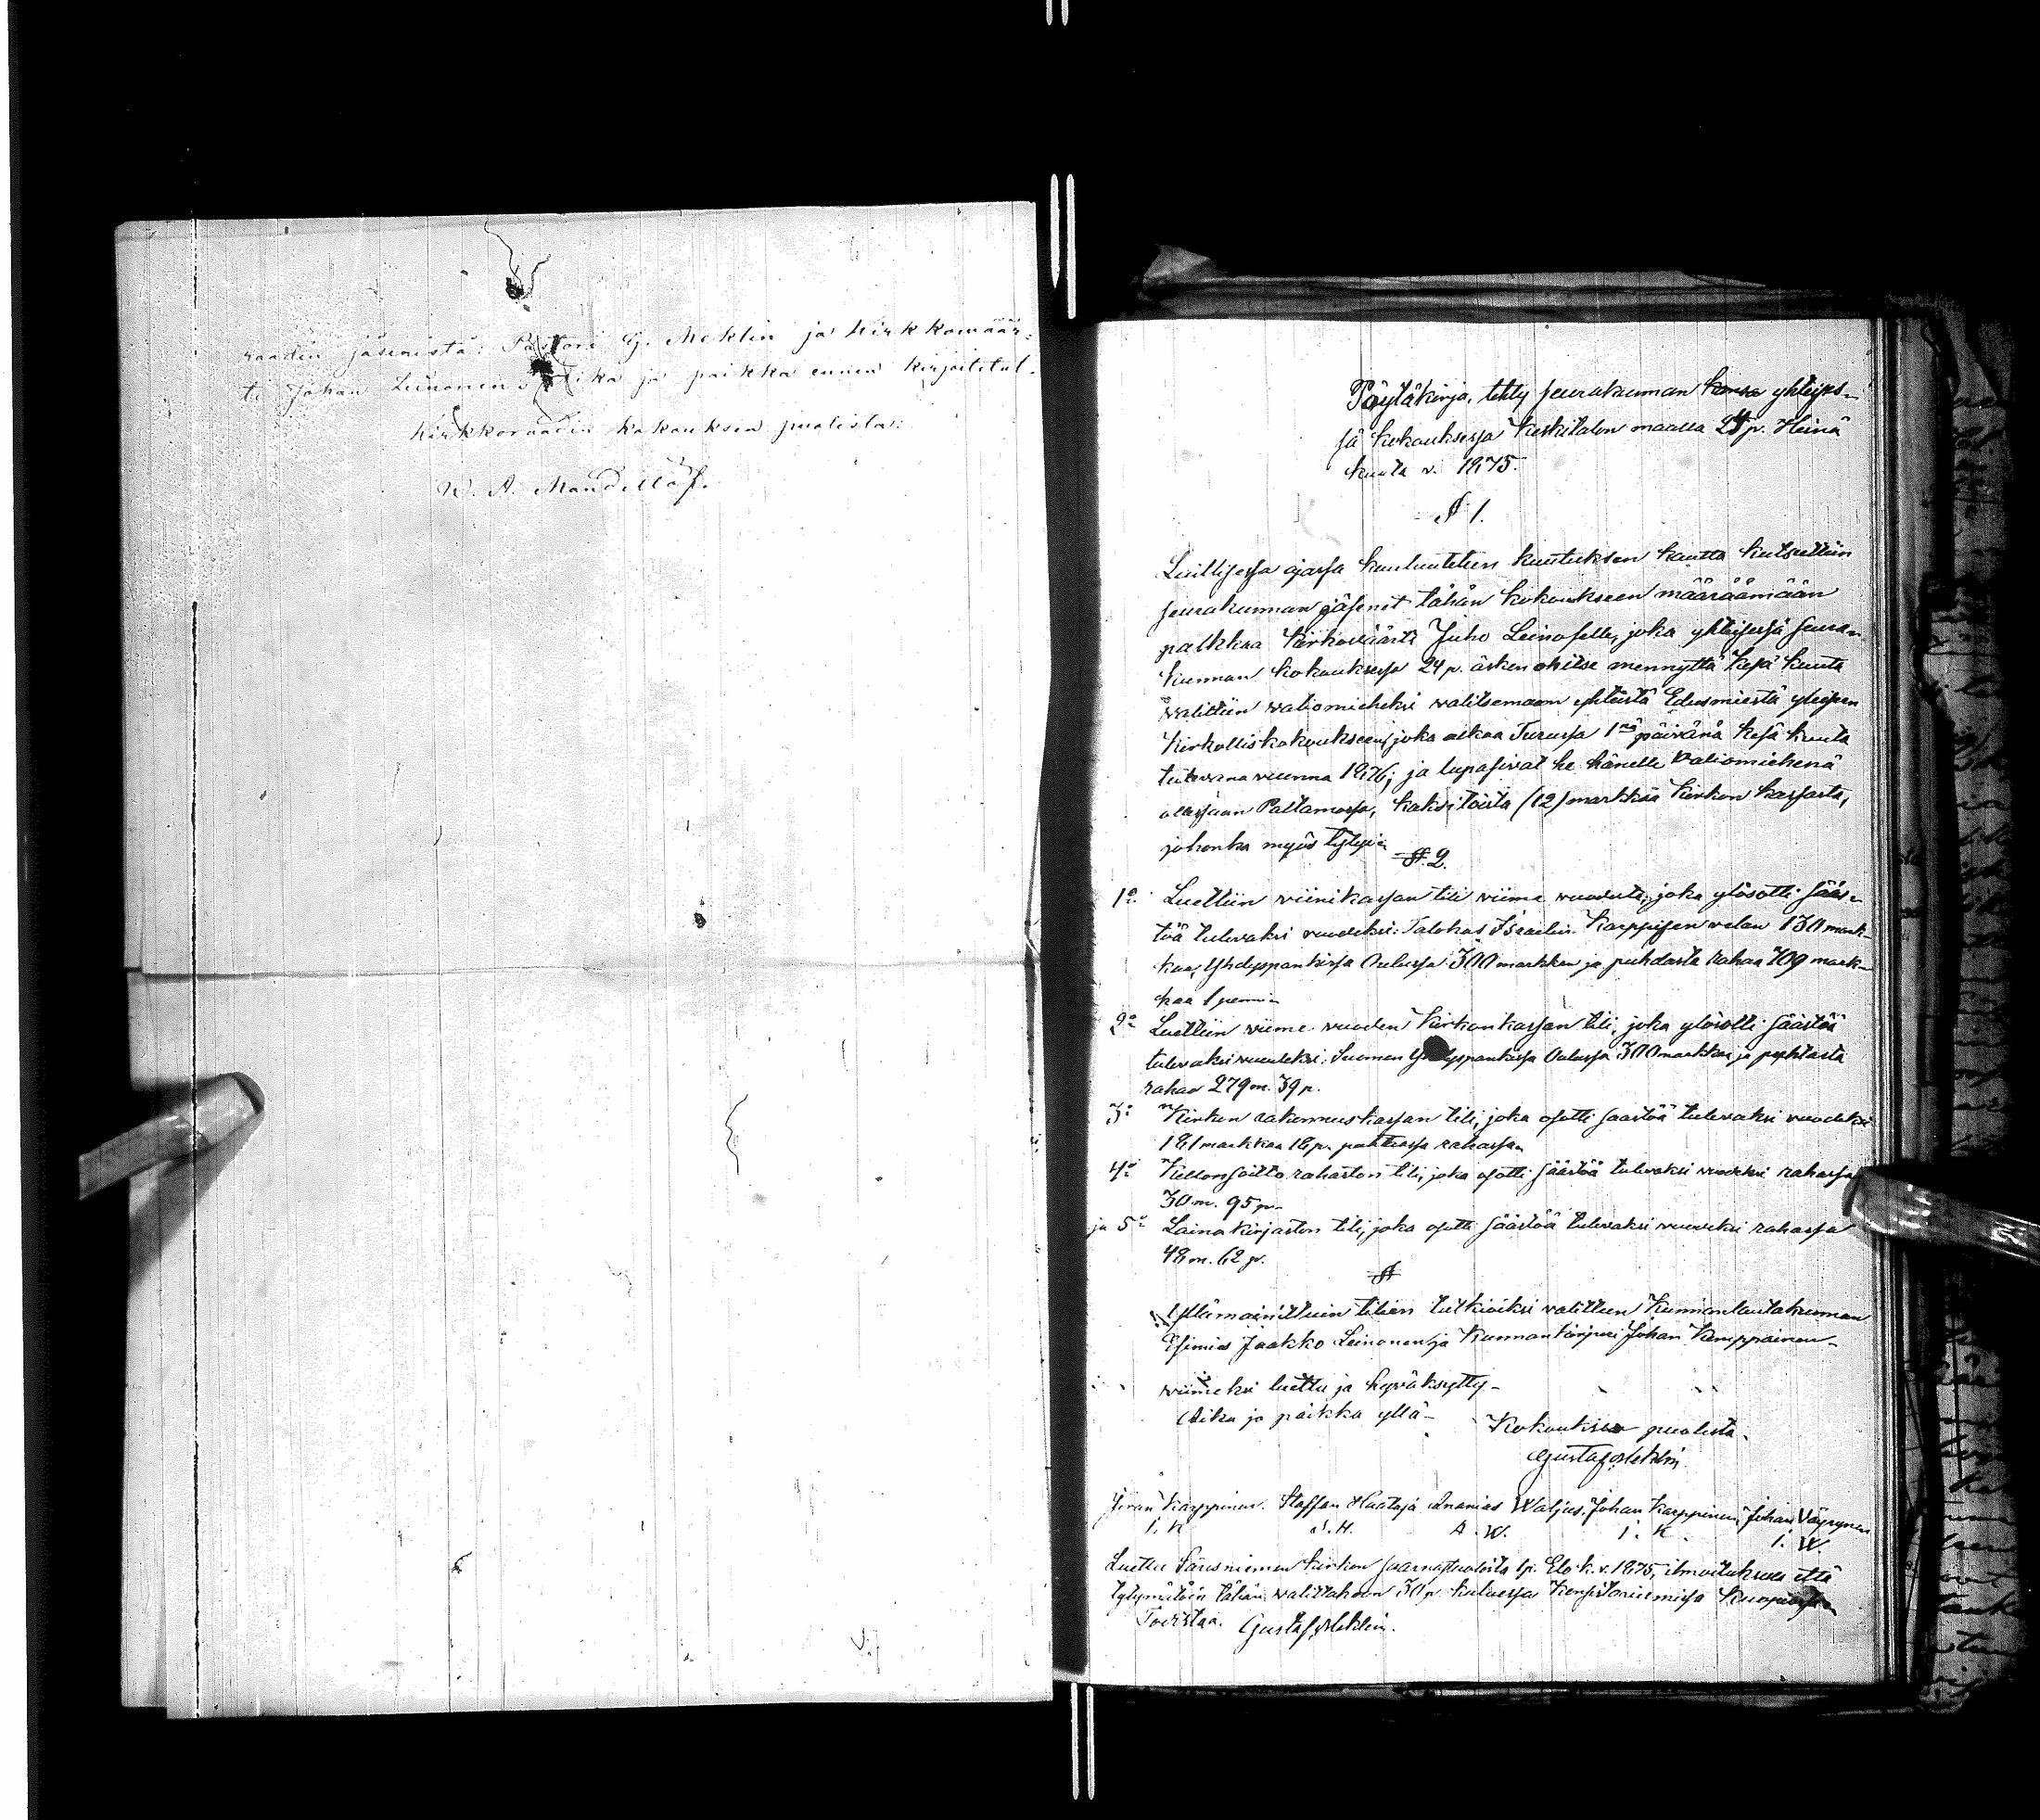 raadin jäsenistä: Pastori G. Meklin ja Kirkkomäär-
ti Johan Leinonen. Aika ja paikka ennen kirjoitetut.
Kirkkoraadin kokouksen puolista:
W. A. Mandellöf.
Pöytäkirja, tehty seurakunnan yhteises-
sä kokouksessa Keskitalon maalla 24 p. Heinä
kuuta v. 1875.
§ 1.
Laillisessa ajassa kuulutetun kuutuksen kautta kutsuttiin
seurakunnan jäsenet tähän kokoukseen määräämään
palkkaa Kirkoväärti Juho Leinoselle, joka yhteisessä seura-
kunnan kokouksessa 24 p. äsken ohitse mennyttä Kesä kuuta
valittiin valiomieheksi valitsemaan yhteistä Edusmiestä yleisen
Kirkolliskokoukseen, joka alkaa Turussa 1nä päivänä Kesä kuuta
tulevana vuonna 1876; ja lupasivat he hänelle valiomiehenä
ollessaan Paltamossa, kaksitoista (12) markkaa Kirkon kassasta,
johonka myös tytyi.
§. 2.
1o. Luettiin viinikassan tili viime vuodelta, joka ylösotti sääs-
töä tulevaksi vuodeksi: Talokas Israelin Karppisen velan 130 mark-
kaa, Yhdyspankissa Oulussa 300 markkaa ja puhdasta rahaa 709 mark-
kaa 1 penni.
2o Luettiin viime vuoden Kirkonkassan tili, joka ylösotti säästöä
tulevaksi vuodeksi: Suomen Yhdyspankissa Oulussa 300 markkaa ja puhtasta
rahaa 279 m. 39 p.
3o Kirkon rakennuskassan tili, joka osotti säästöä tulevaksi vuodeksi
181 markkaa 18 p. puhtaassa rahassa.
4o Kellonsoitto rahaston tili, joka osotti säästöä tulevaksi vuodeksi rahassa
30 m. 95 p.
ja 5o Laina kirjaston tili, joka osotti säästöä tulevaksi vuodeksi rahassa
48 m. 62 p.
§
Yllämainittuin tilien tutkioiksi valittiin Kunnanlautakunnan
Esimies Jaakko Leinonen ja Kunnankirjuri Johan Kemppainen.
viimeksi luettu ja hyväksytty.
Aika ja paikka yllä. Kokouksen puolesta.
Gustaf Meklin
Johan Karppinen. Staffan Haataja Ananias Waljus. Johan Karppinen, Johan Väyrynen
I. K S. H. A. W. I. K I. W.
Luettu Säresniemen kirkon saarnastuolista 1 p. Elo k. v. 1875, ilmoituksella että
tytymätöin tähän valittakoon 30 p. kuluessa Konsistoriumissa Kuopiossa
Toistaa. Gustaf Meklin.